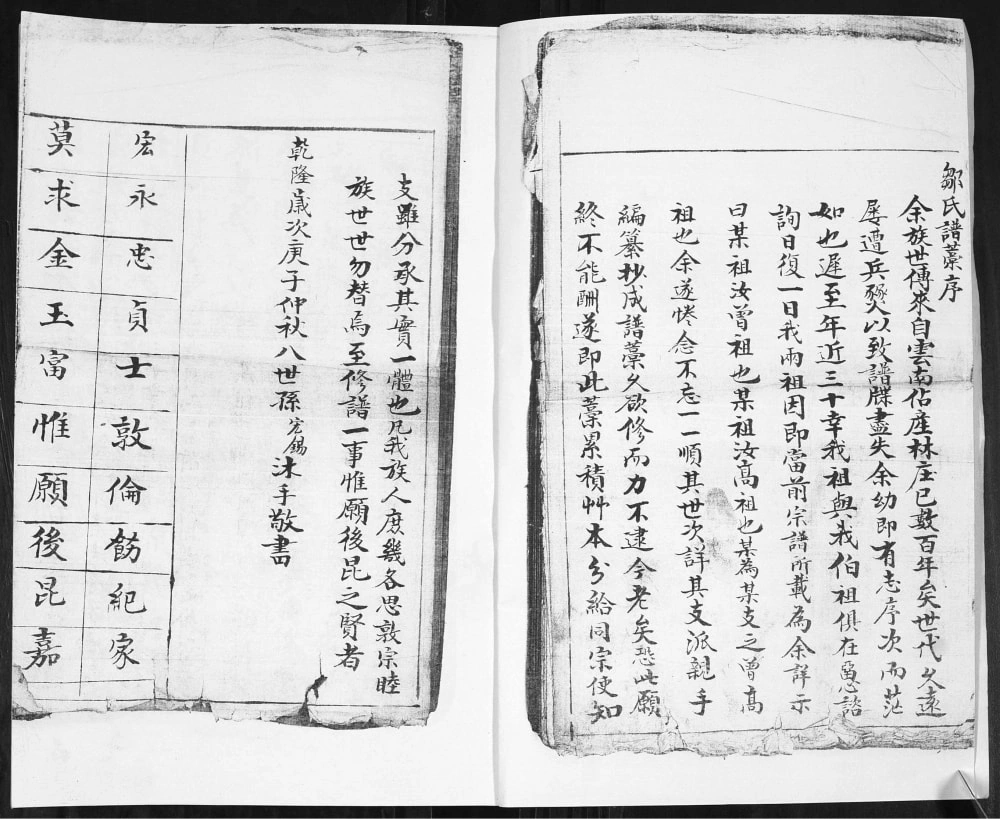 鄒氏譜藁序
余族世傳來自雲南佔產林庄已數百年矣世代久遠
屡遭兵燹以致譜牒盡失余幼即有志序次而茫
如也遲至年近三十幸我祖與我伯祖俱在恳諮
詢日復一日我兩祖因即當前宗譜所載為余詳示
曰某祖汝曾祖也某祖汝高祖也某為某支之曾高
祖也余遂惓念不忘一一順其世次詳其支派親手
編纂抄成譜藁久欲修而力不逮今老矣恐此願
終不能酬遂即此藁累積艸本分給同宗使知
支雖分承其實一體也凡我族人庶幾各思敦宗睦
族世世勿替焉至修譜一事惟願後昆之賢者
乾隆歲次庚子仲秋八世孫宏錫沐手敬書
宏永忠貞士敦倫飭紀家
莫求金玉富惟願後昆嘉